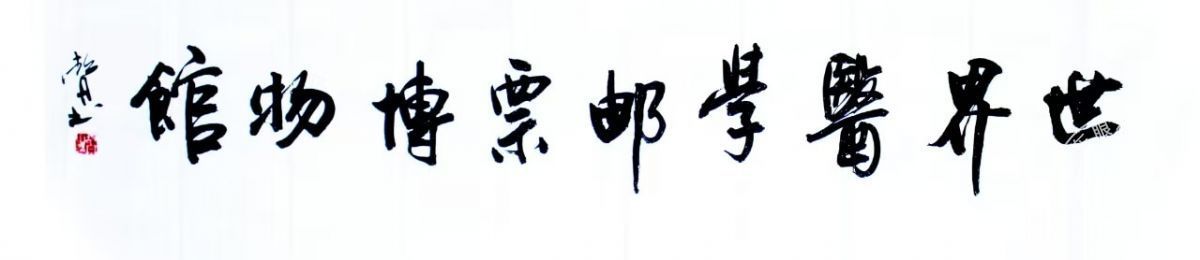 世界醫學邮票博物館